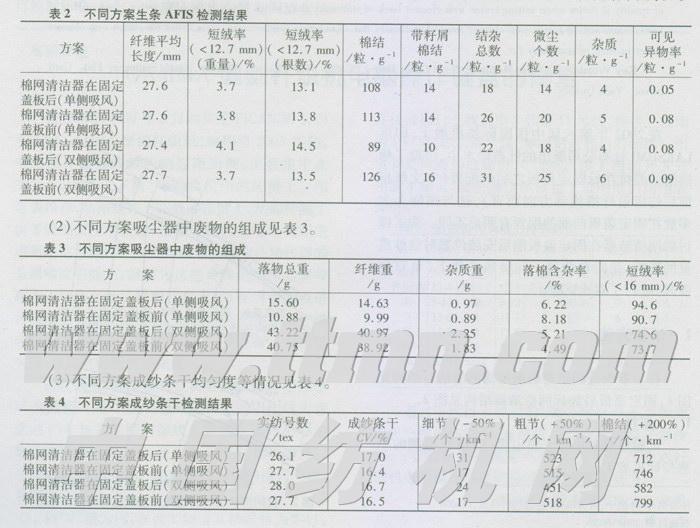 表 2 不同方案生条 AFIS 检测结果
方案 纤维平均长度/mm 短绒率(<12.7 mm)(重量)/% 短绒率(<12.7 mm)(根数)/% 棉结/粒·g⁻¹ 带籽屑棉结/粒·g⁻¹ 结杂总数/粒·g⁻¹ 微尘个数/粒·g⁻¹ 杂质/粒·g⁻¹ 可见异物率/%
棉网清洁器在固定盖板后(单侧吸风) 27.6 3.7 13.1 108 14 18 14 4 0.05
棉网清洁器在固定盖板前(单侧吸风) 27.6 3.8 13.8 113 14 26 20 5 0.08
棉网清洁器在固定盖板后(双侧吸风) 27.4 4.1 14.5 89 10 22 18 4 0.08
棉网清洁器在固定盖板前(双侧吸风) 27.7 3.7 13.5 126 16 31 25 6 0.09
(2)不同方案吸尘器中废物的组成见表 3。
表 3 不同方案吸尘器中废物的组成
方 案 落物总重/g 纤维重/g 杂质重/g 落棉含杂率/% 短绒率(<16 mm)/%
棉网清洁器在固定盖板后(单侧吸风) 15.60 14.63 0.97 6.22 94.6
棉网清洁器在固定盖板前(单侧吸风) 10.88 9.99 0.89 8.18 90.7
棉网清洁器在固定盖板后(双侧吸风) 43.22 40.97 2.25 5.21 74.6
棉网清洁器在固定盖板前(双侧吸风) 40.75 38.92 1.83 4.49 73.7
www.ttmn.com
(3)不同方案成纱条干均匀度等情况见表 4。
表 4 不同方案成纱条干检测结果
方 案 实纺号数/tex 成纱条干CV/% 细节(-50%)/个·km⁻¹ 粗节(+50%)/个·km⁻¹ 棉结(+200%)/个·km⁻¹
棉网清洁器在固定盖板后(单侧吸风) 26.1 17.0 31 523 712
棉网清洁器在固定盖板前(单侧吸风) 27.7 16.4 17 515 746
棉网清洁器在固定盖板后(双侧吸风) 28.0 16.7 24 451 582
棉网清洁器在固定盖板前(双侧吸风) 27.7 16.5 17 518 799
中国纺机网